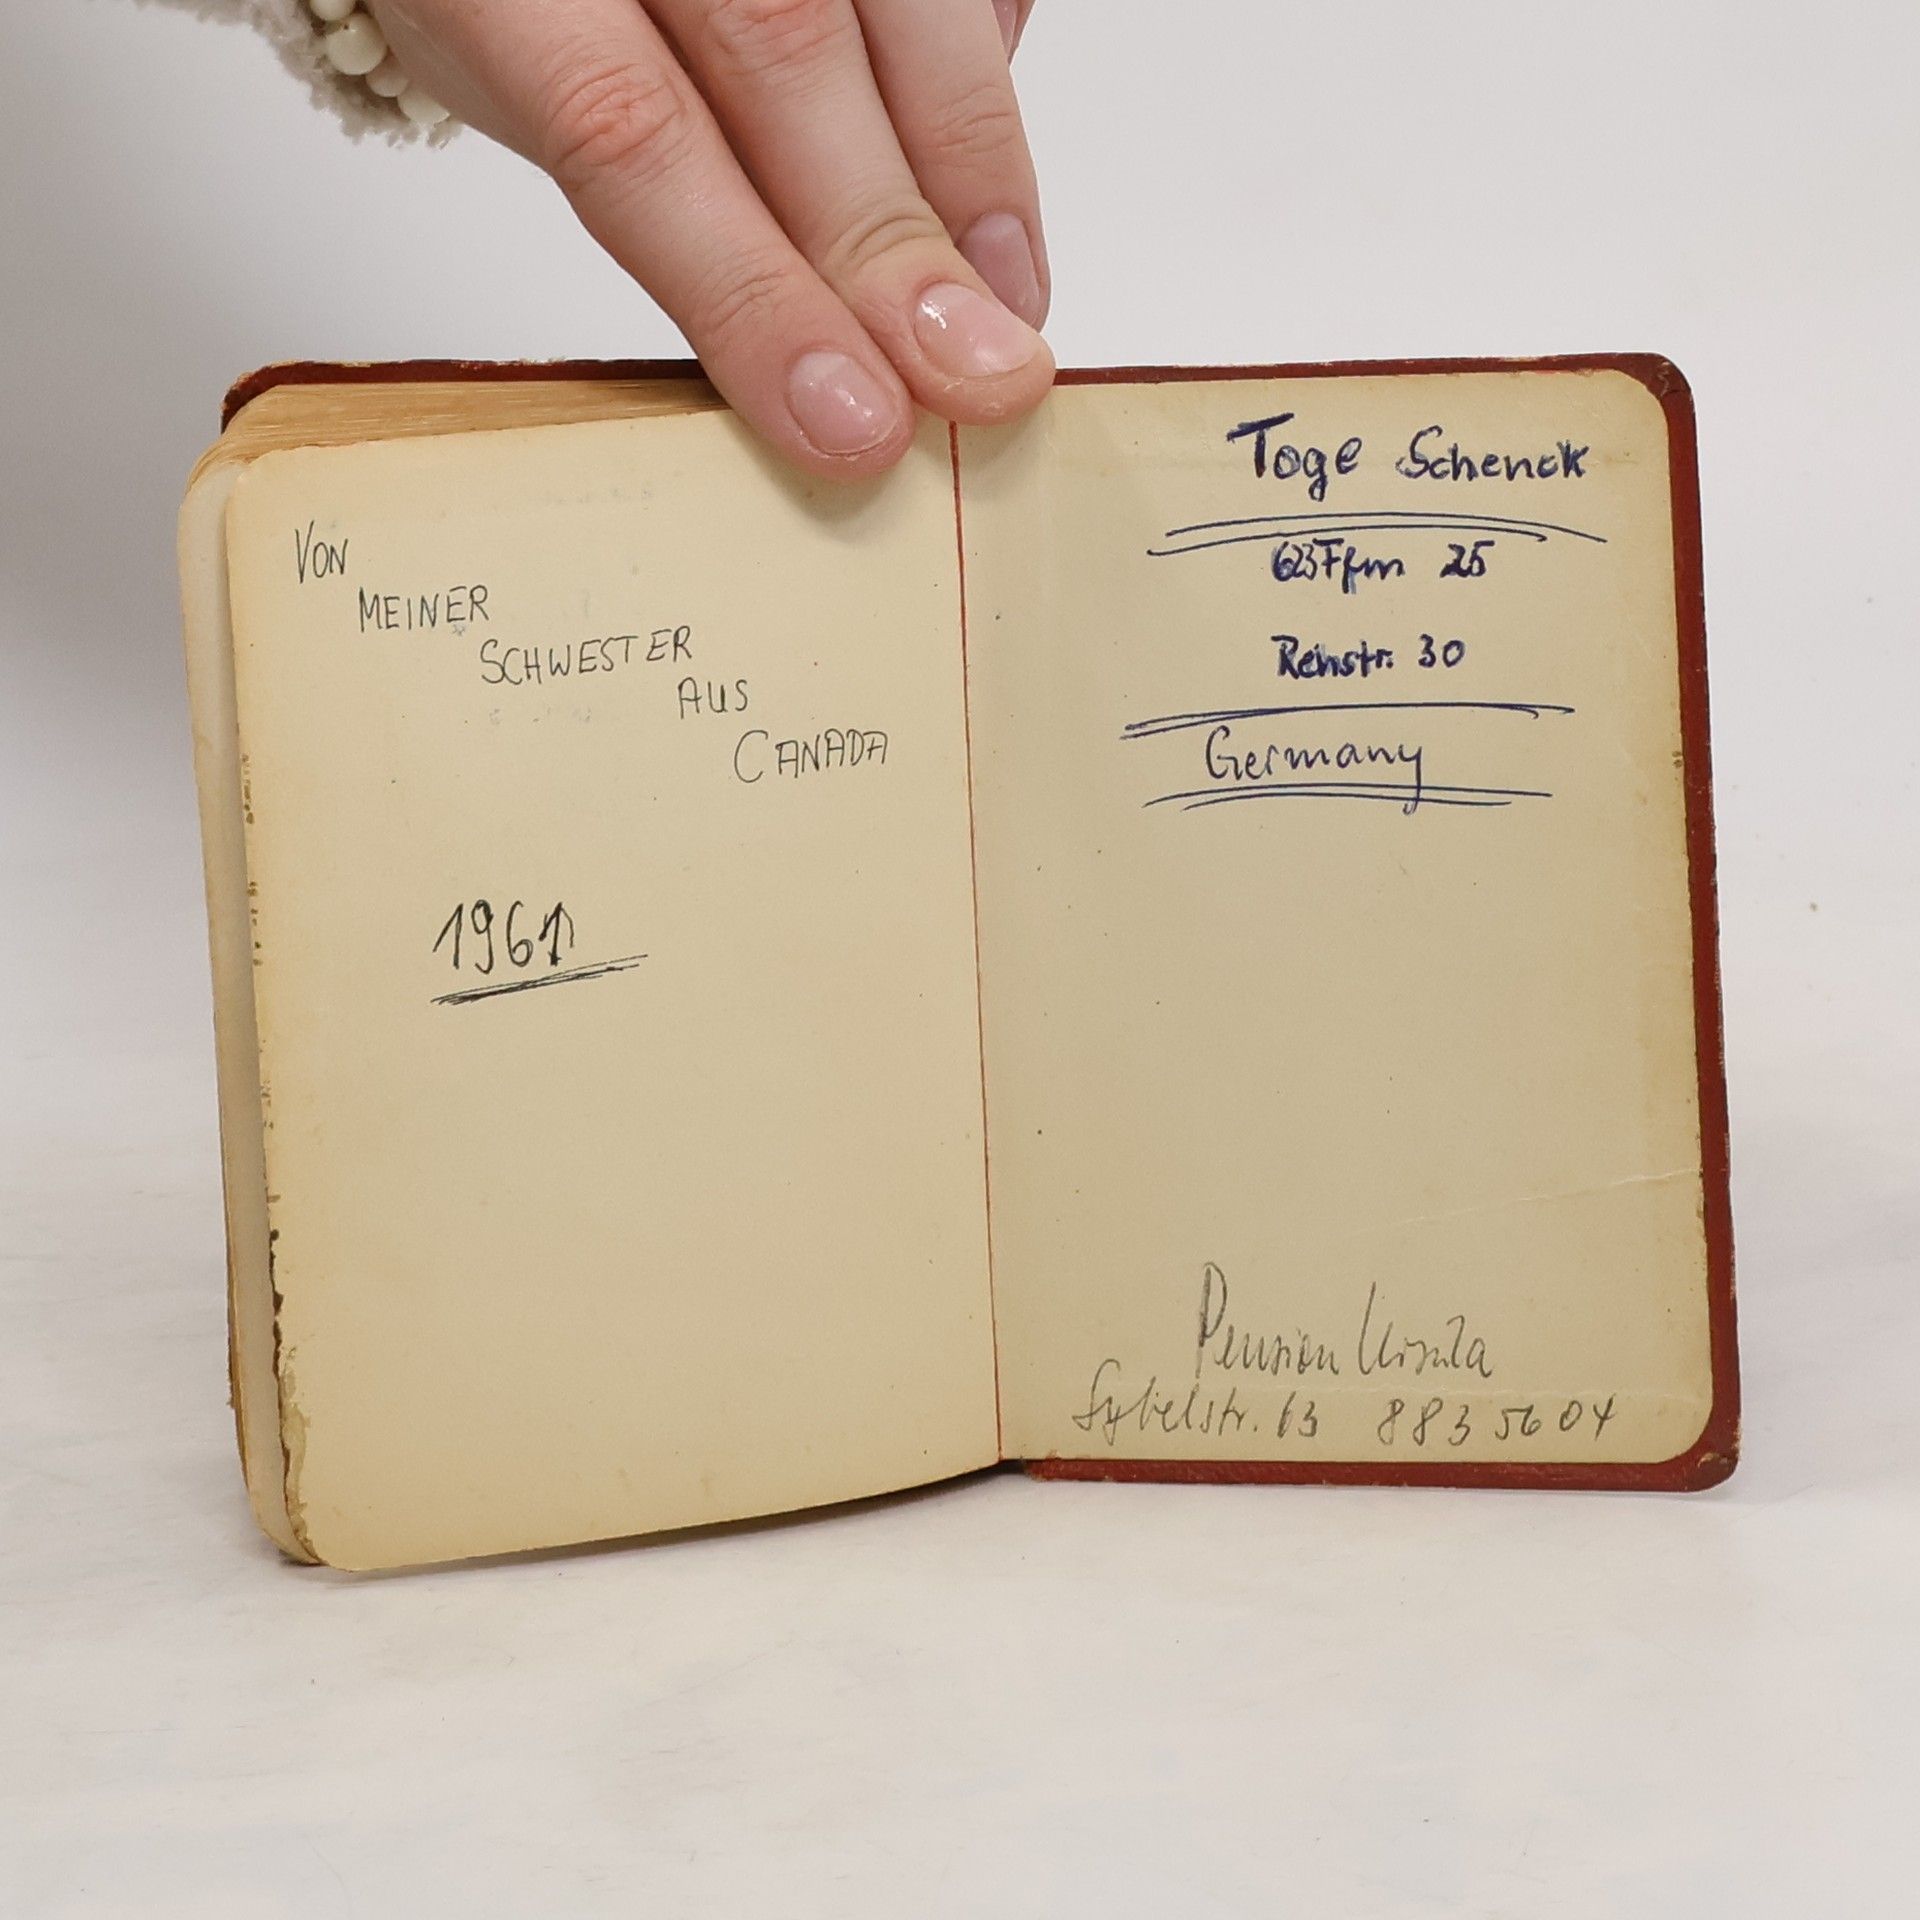 VON
MEINER
SCHWESTER
AUS
CANADA
1961
Toge Schenck
623 Ffm 25
Reinstr. 30
Germany
Pension Ursula
Sybelstr. 63 883 56 04